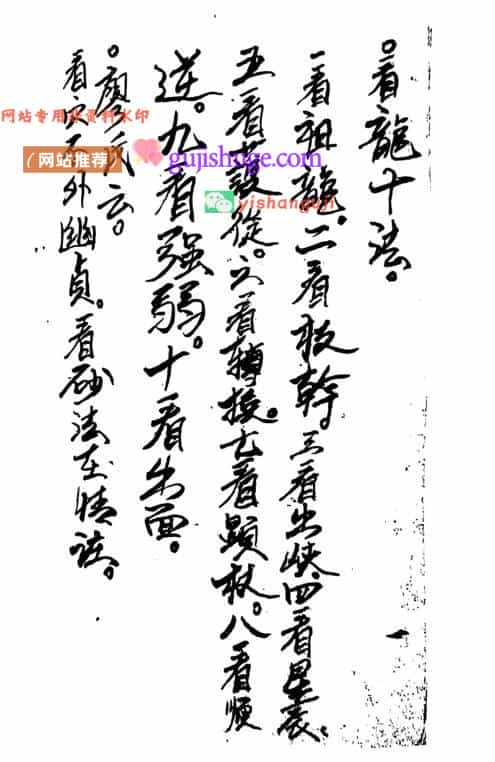 看龍十法。
一看祖龍。二看枝幹。三看出峽。四看星辰。
五看護從。六看轉接。七看顕枝。八看順
逆。九看强弱。十看出面。
。廖氏云。
看穴不外幽貞。看砂法在情
一
网站专用 资料水印
（网站推荐）
gujishuge.com
yishanguji